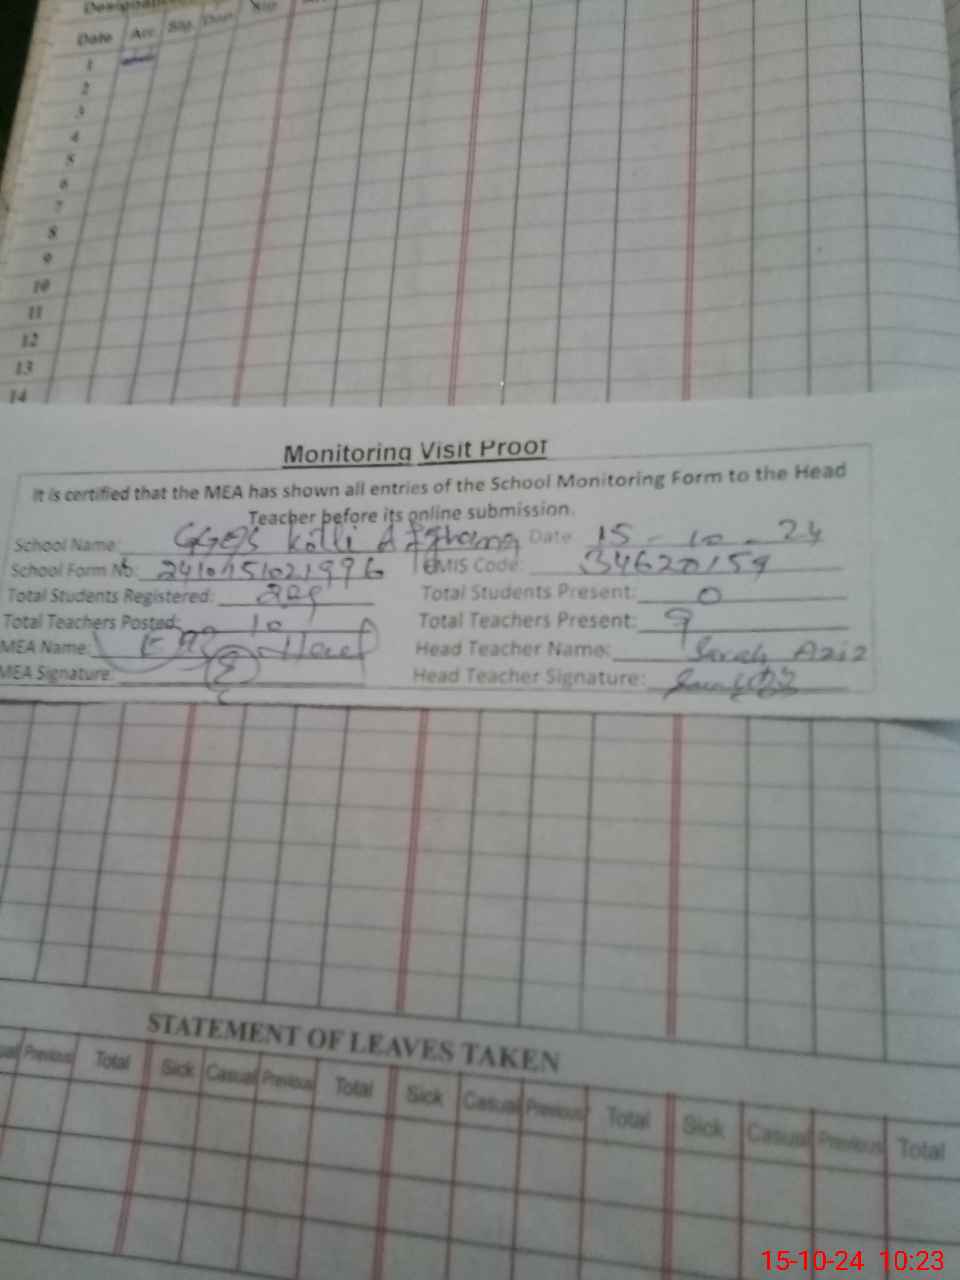 Date Arr. Sig. Dep. Sig.
1
2
3
4
5
6
7
8
9
10
11
12
13
14
Monitoring Visit Proof
It is certified that the MEA has shown all entries of the School Monitoring Form to the Head
Teacher before its online submission.
School Name: Kotli Afghana Date 15-10-24
School Form No: EMIS Code: 34620159
Total Students Registered: Total Students Present: 0
Total Teachers Posted: 10 Total Teachers Present: 9
MEA Name: Head Teacher Name: Sarah Aziz
MEA Signature: Head Teacher Signature:
STATEMENT OF LEAVES TAKEN
Previous Total Sick Casual Previous Total Sick Casual Previous Total Sick Casual Previous Total
15-10-24 10:23